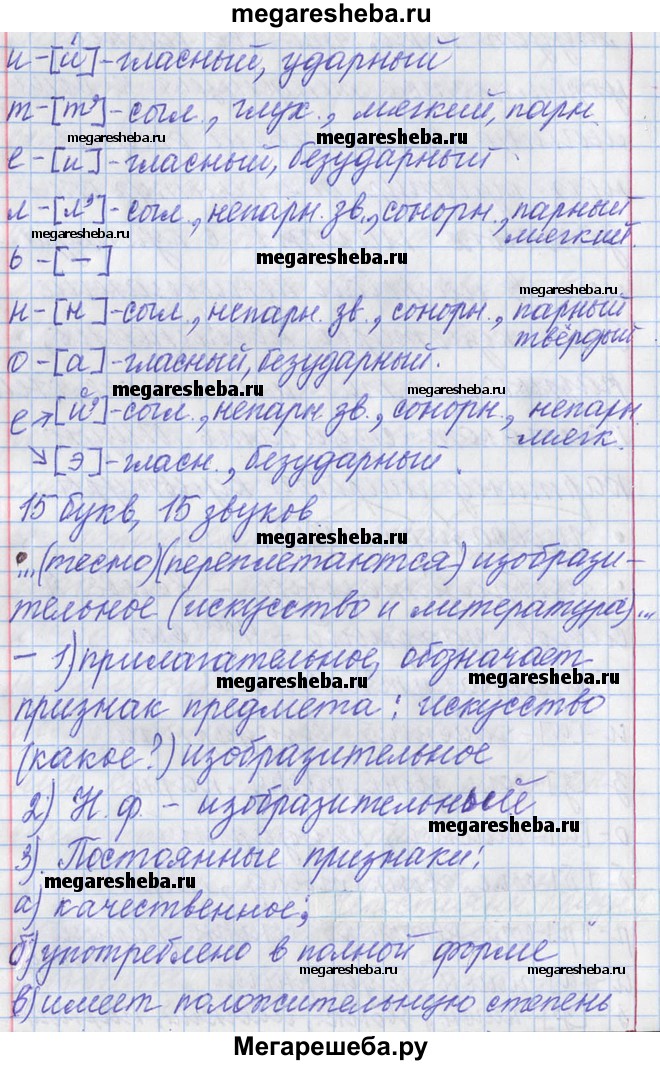 megaresheba.ru
и-[и́]-гласный, ударный
т-[т']-сыл., глух., мягкий, парн.
megaresheba.ru megaresheba.ru
е-[и]-гласный, безударный
л-[л']-сыл., непарн. зв., сонорн., парный
мягкий.
megaresheba.ru megaresheba.ru
ь-[—]
megaresheba.ru
megaresheba.ru
н-[н]-сыл., непарн. зв., сонорн., парный
твёрдый
о-[а]-гласный, безударный.
megaresheba.ru megaresheba.ru
е→[й']-сыл., непарн. зв., сонорн., непарн.
мягк.
↘[э]-гласн., безударный.
15 букв, 15 звуков
megaresheba.ru
...(тесно)(переплетаются) изобрази-
тельное (искусство и литература)...
- 1) прилагательное, обозначает
megaresheba.ru megaresheba.ru
признак предмета: искусство
(какое?) изобразительное
2) Н.ф. - изобразительный
megaresheba.ru
3). Постоянные признаки:
megaresheba.ru
а) качественное;
б) употреблено в полной форме
megaresheba.ru megaresheba.ru
в) имеет положительную степень
Мегарешеба.ру